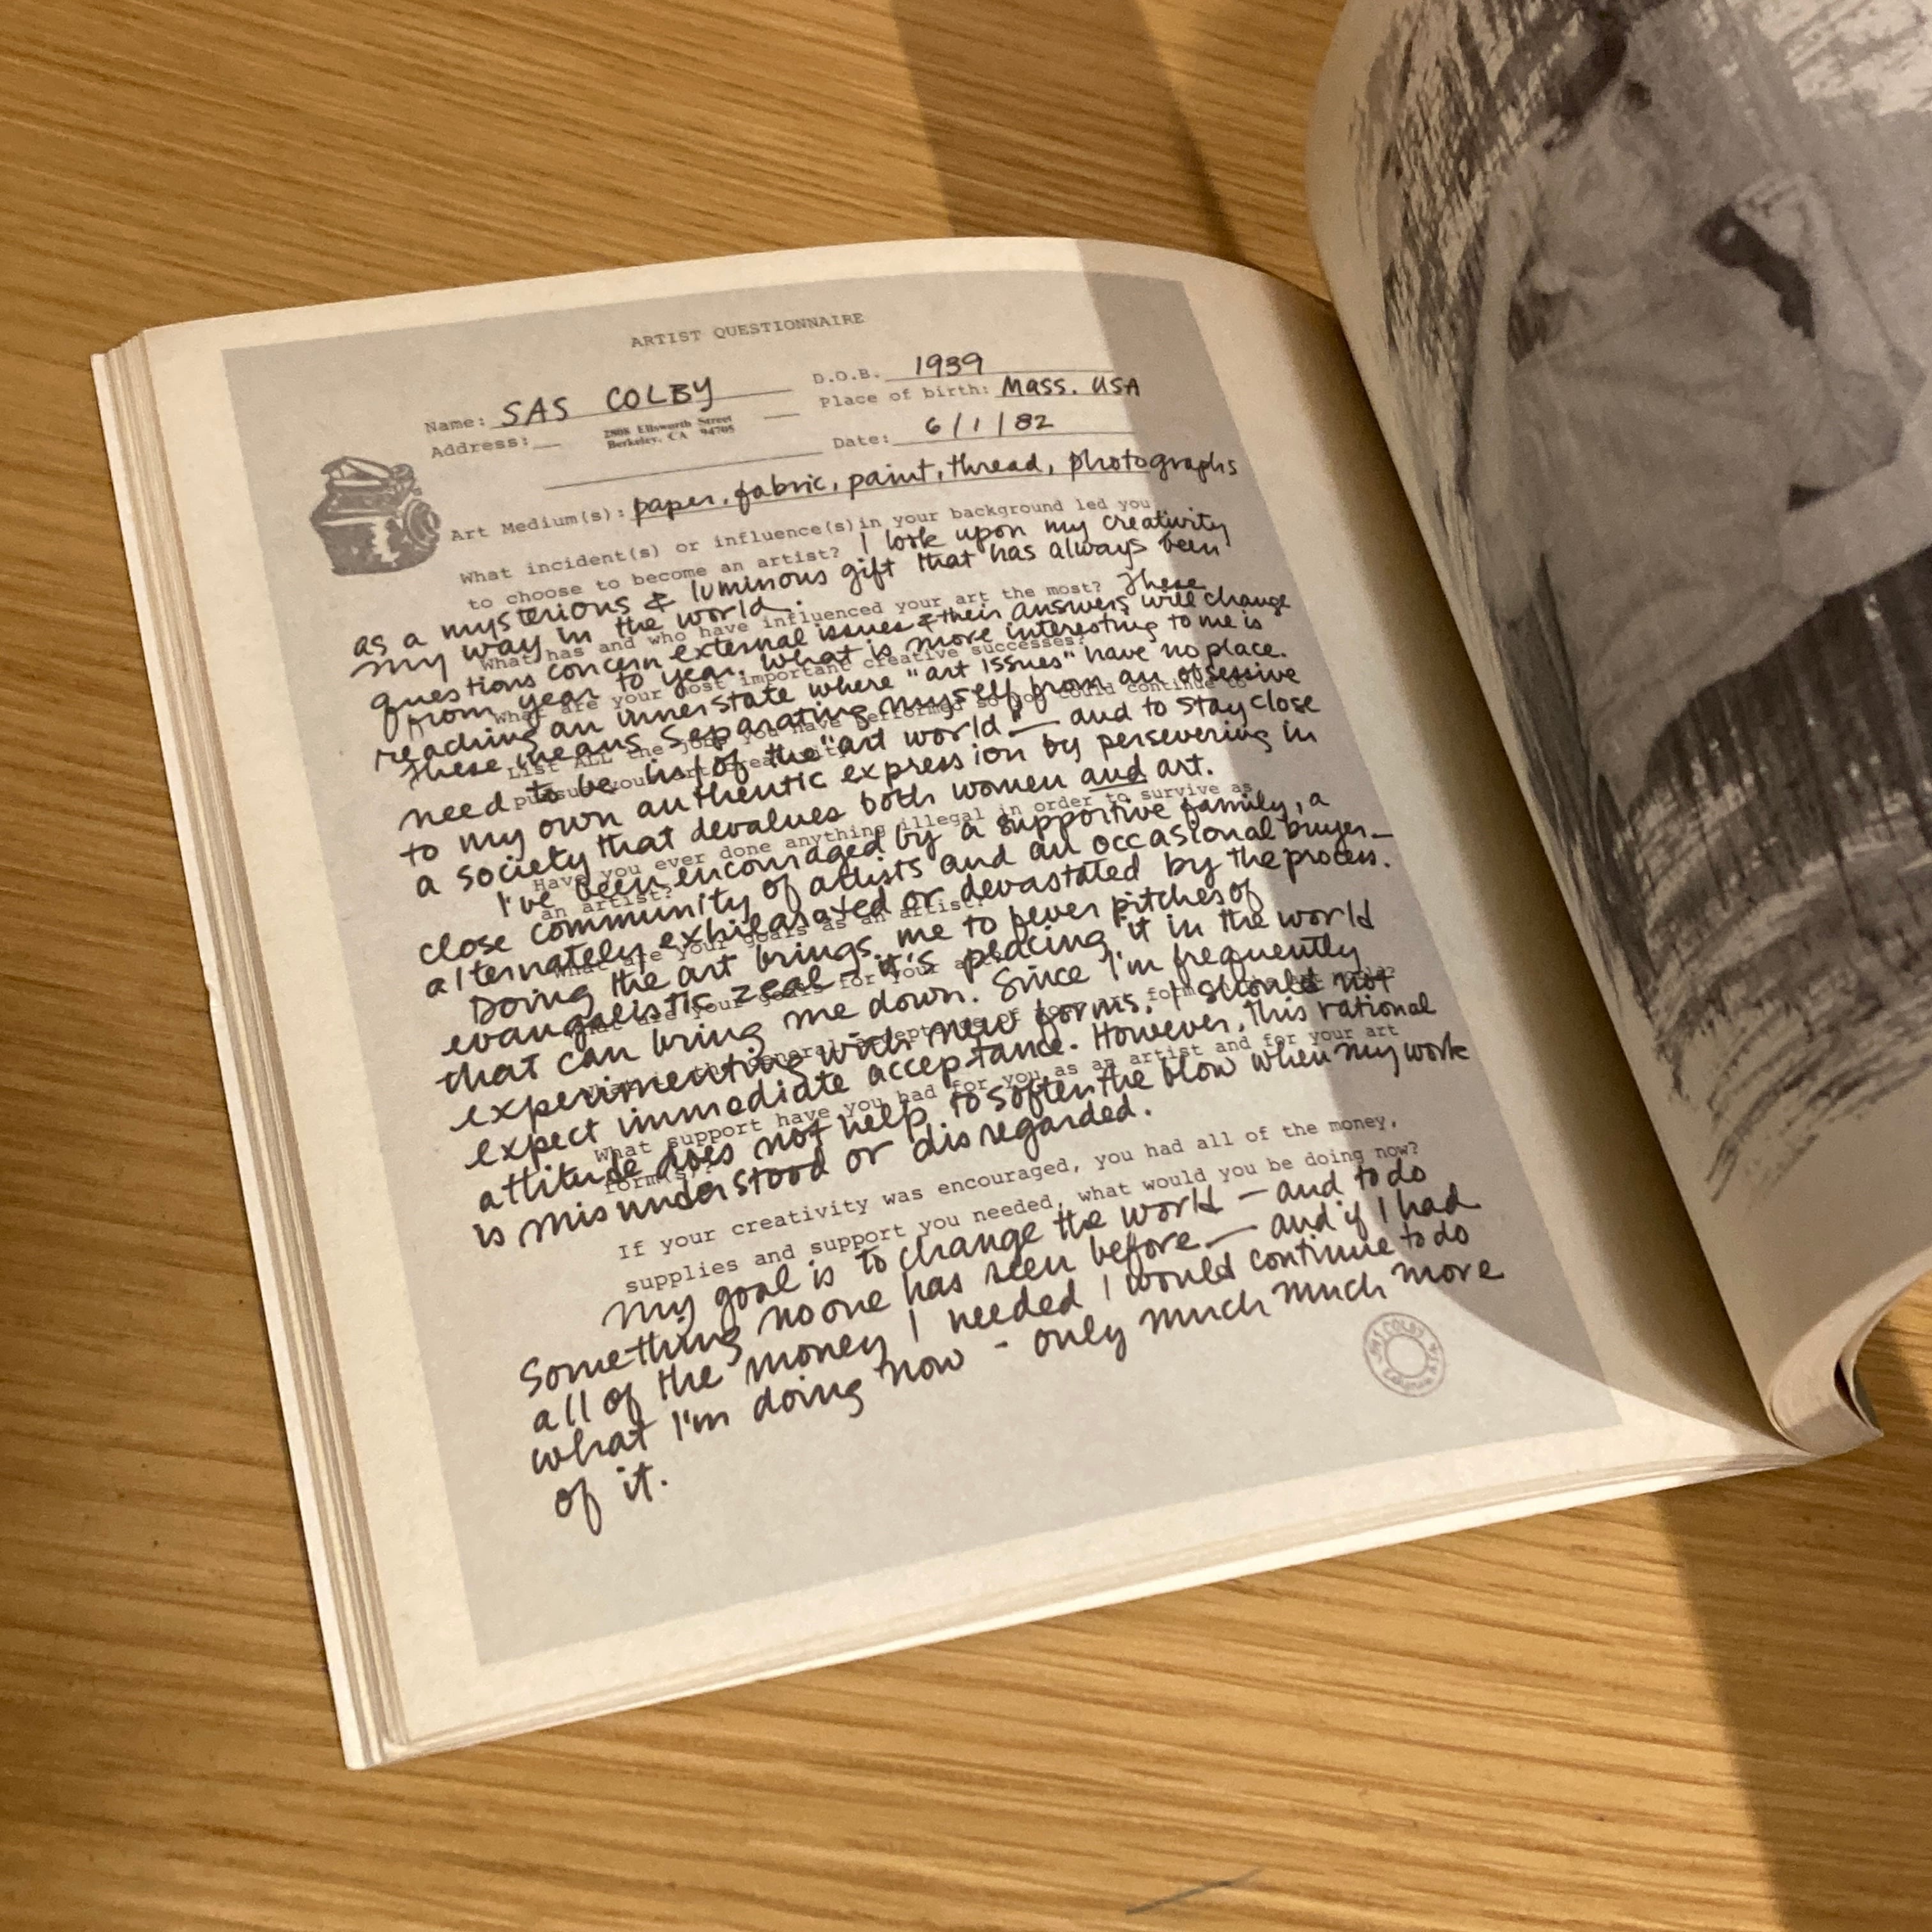 ARTIST QUESTIONNAIRE
Name: SAS COLBY
D.O.B. 1939
Address:
2808 Ellsworth Street
Berkeley, CA 94705
Place of birth: Mass. USA
Date: 6/1/82
Art Medium(s): paper, fabric, paint, thread, photographs
What incident(s) or influence(s) in your background led you
to choose to become an artist? I look upon my creativity
as a mysterious & luminous gift that has always been
my way in the world.
What has and who have influenced your art the most? These
questions concern external issues & their answers will change
from year to year. What is more interesting to me is
What are your most important creative successes?
reaching an inner state where "art issues" have no place.
These means separating myself from an obsessive
List ALL the jobs you have performed so you could continue to
need to be in/of the "art world" — and to stay close
pursue your art
to my own authentic expression by persevering in
a society that devalues both women and art.
Have you ever done anything illegal in order to survive as
an artist?
I've been encouraged by a supportive family, a
close community of artists and an occasional buyer—
alternately exhilarated or devastated by the process.
What are your goals as an artist?
Doing the art brings me to fever pitches of
evangelistic zeal – it's placing it in the world
What are your goals for your art?
that can bring me down. Since I'm frequently
experimenting with new forms, I should not
expect immediate acceptance. However, this rational
What support have you had for you as an artist and for your art
form(s)?
attitude does not help to soften the blow when my work
is misunderstood or disregarded.
If your creativity was encouraged, you had all of the money,
supplies and support you needed, what would you be doing now?
My goal is to change the world — and to do
something no one has seen before — and if I had
all of the money I needed I would continue to do
what I'm doing now - only much much more
of it.
SAS COLBY